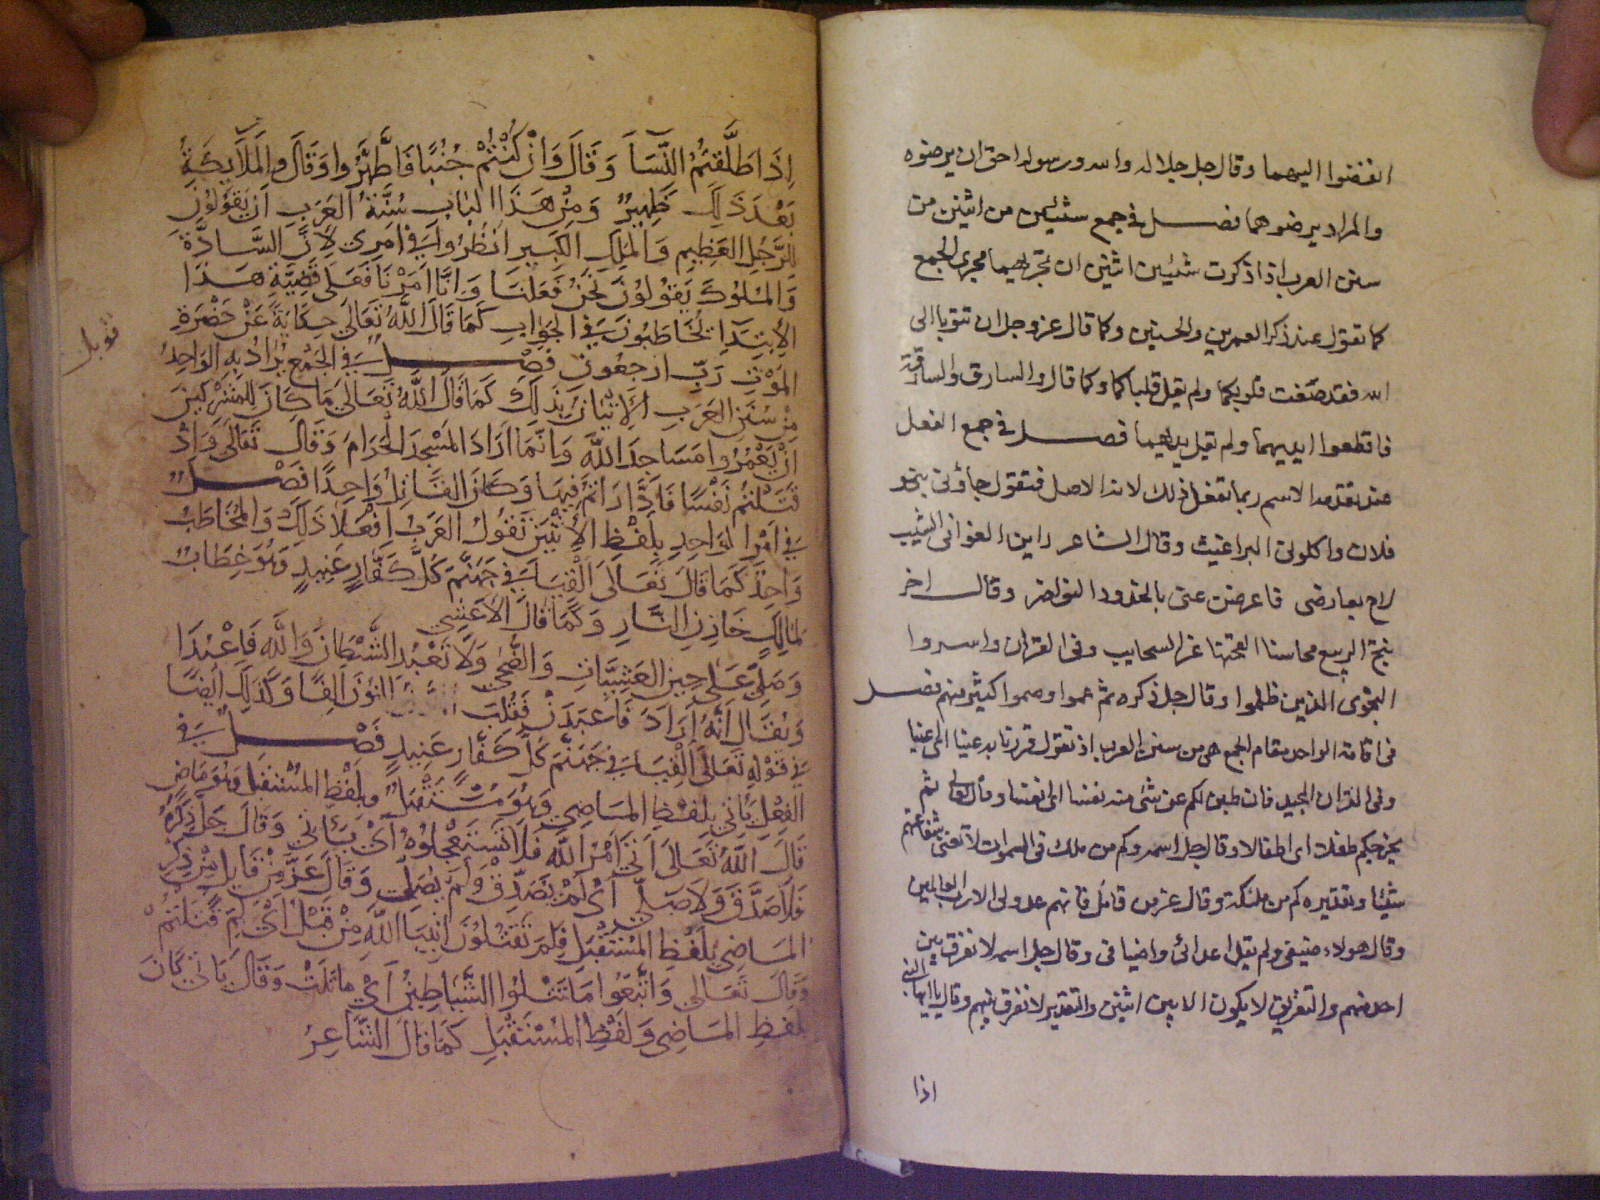 انفضوا اليهما وقال جل جلاله والله ورسوله احق ان يرضوه
والمراد يرضوهما فصل في جمع شيئين من اثنين من
سنن العرب اذا ذكرت شيئين اثنين ان تجريهما مجرى الجمع
كما تقول عند ذكر العمرين والحسنين وكما قال عز وجل ان تتوبا الى
الله فقد صغت قلوبكما ولم يقل قلباكما وكما قال والسارق والسارقة
فاقطعوا ايديهما ولم يقل يديهما فصل في جمع الفعل
عند تقدمه الاسم ربما تفعل ذلك لانه الاصل فتقول جاؤنى بنو
فلان واكلونى البراغيث وقال الشاعر راين الغوانى الشيب
لاح بعارضى فاعرضن عنى بالخدود النواضر وقال اخر
نتج الربيع محاسنا القحنها غر السحايب وفى القران واسروا
النجوى الذين ظلموا وقال جل ذكره ثم عموا وصموا كثير منهم فصل
فى اقامة الواحد مقام الجمع هى من سنن العرب اذ تقول قررنا به عينا اى اعينا
وفى القران المجيد فان طبن لكم عن شى منه نفسا اى انفسا وقال تعالى ثم
يخرجكم طفلا اى اطفالا وقال جل اسمه وكم من ملك فى السموات لا تغنى شفاعتهم
شيئا وتقديره كم من ملئكة وقال عز من قائل فانهم عدو لى الا رب العالمين
وقال هولاء ضيفى ولم يقل اعدائى واضيافى وقال جل اسمه لا نفرق بين
احد منهم والتفريق لا يكون الا بين اثنين والتقدير لا نفرق بينهم وقال يا ايها النبي
اذا
اِذَا طَلَّقْتُمُ النِّسَاَ وَقَالَ وَاِنْ كُنْتُمْ جُنُبًا فَاطَّهَّرُوا وَقَالَ والْمَلَايِكَةُ
بَعْدَ ذَلِكَ ظَهِيرٌ وَمِنْ هَذَا الْبَابِ سُنَّةُ الْعَرَبِ اَنْ يَقُولُونِ
لِلرَّجُلِ الْعَظِيمِ وَالْمَلِكِ الْكَبِيرِ انْظُرُوا فِى اَمْرِى لِاَنَّ السَّادَةَ
وَالْمُلُوكَ يَقُولُونَ نَحْنُ فَعَلْنَا وَاِنَّا اَمَرْنَا فَعَلَى قَضِيَّةِ هَذَا
الِابْتِدَا يُخَاطَبُونَ فِي الْجَوَابِ كَمَا قَالَ اللَّهُ تَعَالَى حِكَايَةً عَنْ حَضْرَةِ
الْمَوْتِ رَبِّ ارْجِعُونِ فَصْلٌ فِى الْجَمْعِ يُرَادُ بِهِ الْوَاحِدُ
مِنْ سُنَنِ الْعَرَبِ الْاِتْيَانُ بِذَلِكَ كَمَا قَالَ اللَّهُ تَعَالَى مَا كَانَ لِلْمُشْرِكِينَ
اَنْ يَعْمُرُوا مَسَاجِدَ اللَّهِ وَاِنَّمَا اَرَادَ الْمَسْجِدَ الْحَرَامَ وَقَالَ تَعَالَى وَاِذْ
قَتَلْتُمْ نَفْسًا فَادَّارَاْتُمْ فِيهَا وَكَانَ الْقَاتِلُ وَاحِدًا فَصْلٌ
فِى اَمْرِ الْوَاحِدِ بِلَفْظِ الْاِثْنَيْنِ تَقُولُ الْعَرَبُ افْعَلَا ذَلِكَ وَالْمُخَاطَبُ
وَاحِدٌ كَمَا قَالَ تَعَالَى اَلْقِيَا فِى جَهَنَّمَ كُلَّ كَفَّارٍ عَنِيدٍ وَهُوَ خِطَابٌ
لِمَالِكٍ خَازِنِ النَّارِ وَكَمَا قَالَ الْاَعْشَى
وَصَلِّ عَلَى حِينِ الْعَشِيَّاتِ وَالضُّحَى وَلَا تَعْبُدِ الشَّيْطَانَ وَاللَّهَ فَاعْبُدَا
وَيُقَالُ اِنَّهُ اَرَادَ فَاعْبُدَنْ فَقُلِبَ النُّونُ اَلِفًا وَكَذَلِكَ اَيْضًا
فِى قَوْلِهِ تَعَالَى اَلْقِيَا فِى جَهَنَّمَ كُلَّ كَفَّارٍ عَنِيدٍ فَصْلٌ فِى
الْفِعْلِ يَاْتِى بِلَفْظِ الْمَاضِى وَهُوَ مُسْتَقْبَلٌ وَبِلَفْظِ الْمُسْتَقْبَلِ وَهُوَ مَاضٍ
قَالَ اللَّهُ تَعَالَى اَتَى اَمْرُ اللَّهِ فَلَا تَسْتَعْجِلُوهُ اَىْ يَاْتِى وَقَالَ جَلَّ ذِكْرُهُ
فَلَا صَدَّقَ وَلَا صَلَّى اَىْ لَمْ يُصَدِّقْ وَلَمْ يُصَلِّ وَقَالَ عَزَّ مِنْ قَايِلٍ مِنْ ذِكْرِ
الْمَاضِى بِلَفْظِ الْمُسْتَقْبَلِ فَلِمَ تَقْتُلُونَ اَنْبِيَاَ اللَّهِ مِنْ قَبْلُ اَىْ لِمَ قَتَلْتُمْ
وَقَالَ تَعَالَى وَاتَّبَعُوا مَا تَتْلُوا الشَّيَاطِينُ اَىْ مَا تَلَتْ وَقَالَ يَاْتِى كَانَ
بِلَفْظِ الْمَاضِى وَلَفْظِ الْمُسْتَقْبَلِ كَمَا قَالَ الشَّاعِرُ